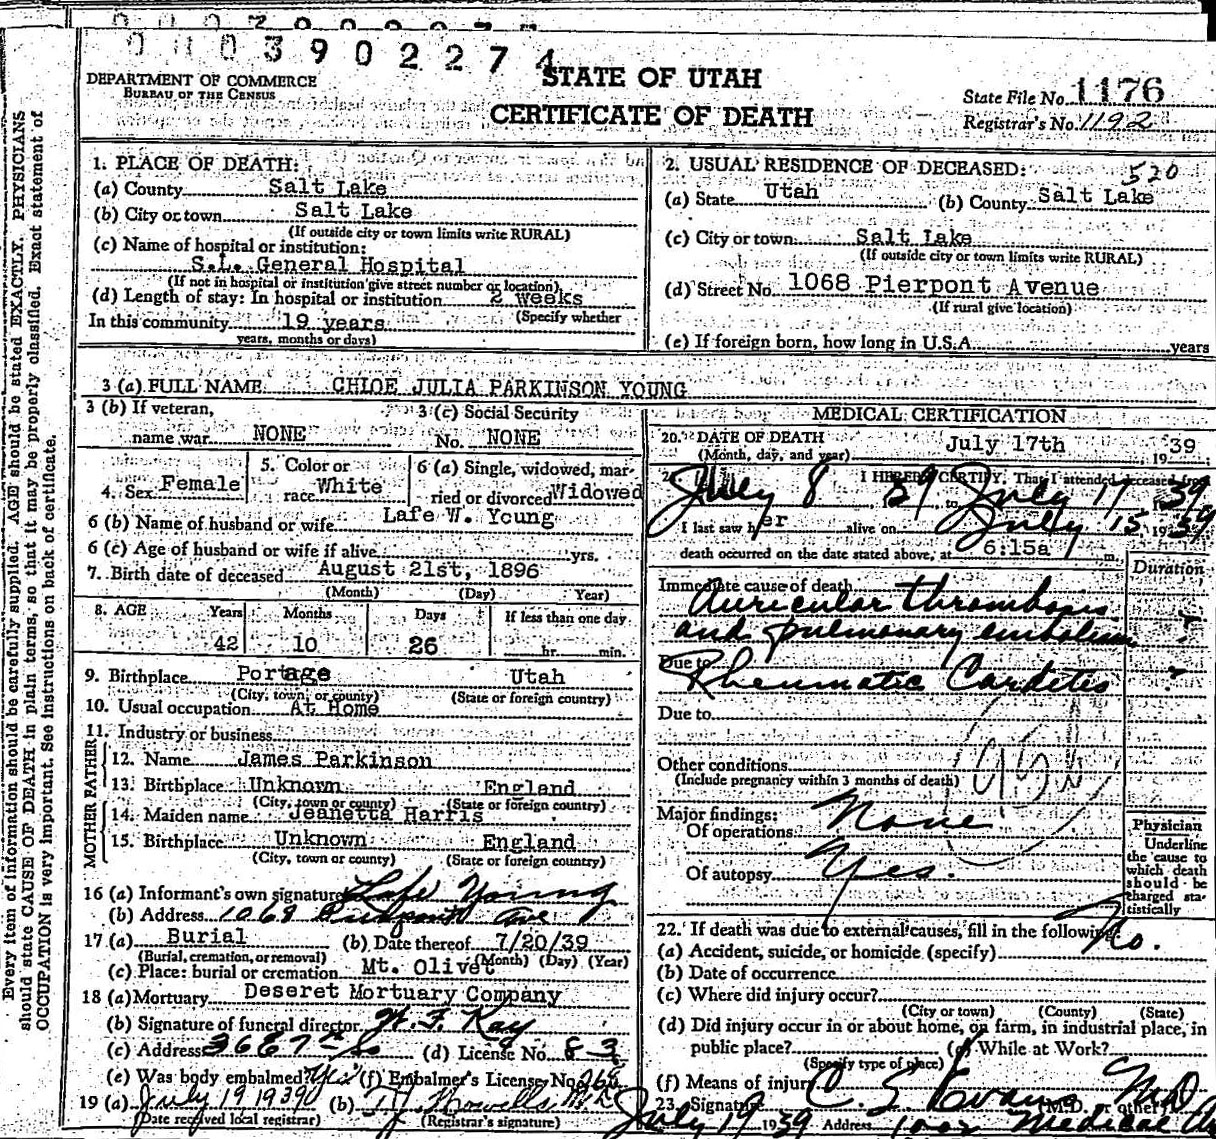 0003902274
DEPARTMENT OF COMMERCE
BUREAU OF THE CENSUS
STATE OF UTAH
CERTIFICATE OF DEATH
State File No. 1176
Registrar's No. 1192
Every item of information should be carefully supplied. AGE should be stated EXACTLY. PHYSICIANS
should state CAUSE OF DEATH in plain terms, so that it may be properly classified. Exact statement of
OCCUPATION is very important. See instructions on back of certificate.
1. PLACE OF DEATH:
(a) County Salt Lake
(b) City or town Salt Lake
(If outside city or town limits write RURAL)
(c) Name of hospital or institution:
S.L. General Hospital
(If not in hospital or institution give street number or location)
(d) Length of stay: In hospital or institution 2 weeks
(Specify whether
In this community 19 years
years, months or days)
2. USUAL RESIDENCE OF DECEASED: 520
(a) State Utah (b) County Salt Lake
(c) City or town Salt Lake
(If outside city or town limits write RURAL)
(d) Street No. 1068 Pierpont Avenue
(If rural give location)
(e) If foreign born, how long in U.S.A. years
3 (a) FULL NAME CHLOE JULIA PARKINSON YOUNG
3 (b) If veteran,
name war NONE
3 (c) Social Security
No. NONE
4. Sex Female
5. Color or
race White
6 (a) Single, widowed, mar-
ried or divorced Widowed
6 (b) Name of husband or wife Lafe W. Young
6 (c) Age of husband or wife if alive yrs.
7. Birth date of deceased August 21st, 1896
(Month) (Day) Year)
8. AGE Years Months Days If less than one day
42 10 26 hr. min.
9. Birthplace Portage Utah
(City, town, or county) (State or foreign country)
10. Usual occupation At Home
11. Industry or business
FATHER
12. Name James Parkinson
13. Birthplace Unknown England
(City, town or county) (State or foreign country)
MOTHER
14. Maiden name Jeanetta Harris
15. Birthplace Unknown England
(City, town or county) (State or foreign country)
16 (a) Informant's own signature Lafe Young
(b) Address 1068 Pierpont Ave
17 (a) Burial (b) Date thereof 7/20/39
(Burial, cremation, or removal) (Month) (Day) (Year)
(c) Place: burial or cremation Mt. Olivet
18 (a) Mortuary Deseret Mortuary Company
(b) Signature of funeral director W. F. Kay
(c) Address 36 E 7th So (d) License No. 83
(e) Was body embalmed? Yes (f) Embalmer's License No. 268
19 (a) July 19 1939 (b)
(Date received local registrar) (Registrar's signature)
MEDICAL CERTIFICATION
20. DATE OF DEATH July 17th 1939
(Month, day, and year)
I HEREBY CERTIFY, That I attended deceased from
July 8 39 to July 17 1939
I last saw her alive on July 15 1939
death occurred on the date stated above, at 6:15a m.
Duration
Immediate cause of death
Auricular thrombosis
and pulmonary embolism ?
Due to
Rheumatic Cardetes ?
Due to
Other conditions
(Include pregnancy within 3 months of death)
Major findings:
Of operations None
Of autopsy Yes.
Physician
Underline
the cause to
which death
should be
charged sta-
tistically
22. If death was due to external causes, fill in the following:
(a) Accident, suicide, or homicide (specify) No.
(b) Date of occurrence
(c) Where did injury occur?
(City or town) (County) (State)
(d) Did injury occur in or about home, on farm, in industrial place, in
public place? (e) While at Work?
(Specify type of place)
(f) Means of injury
23. Signature C. S. Evans M.D.
(M.D. or other)
July 19 1939 Address 1002 Medical